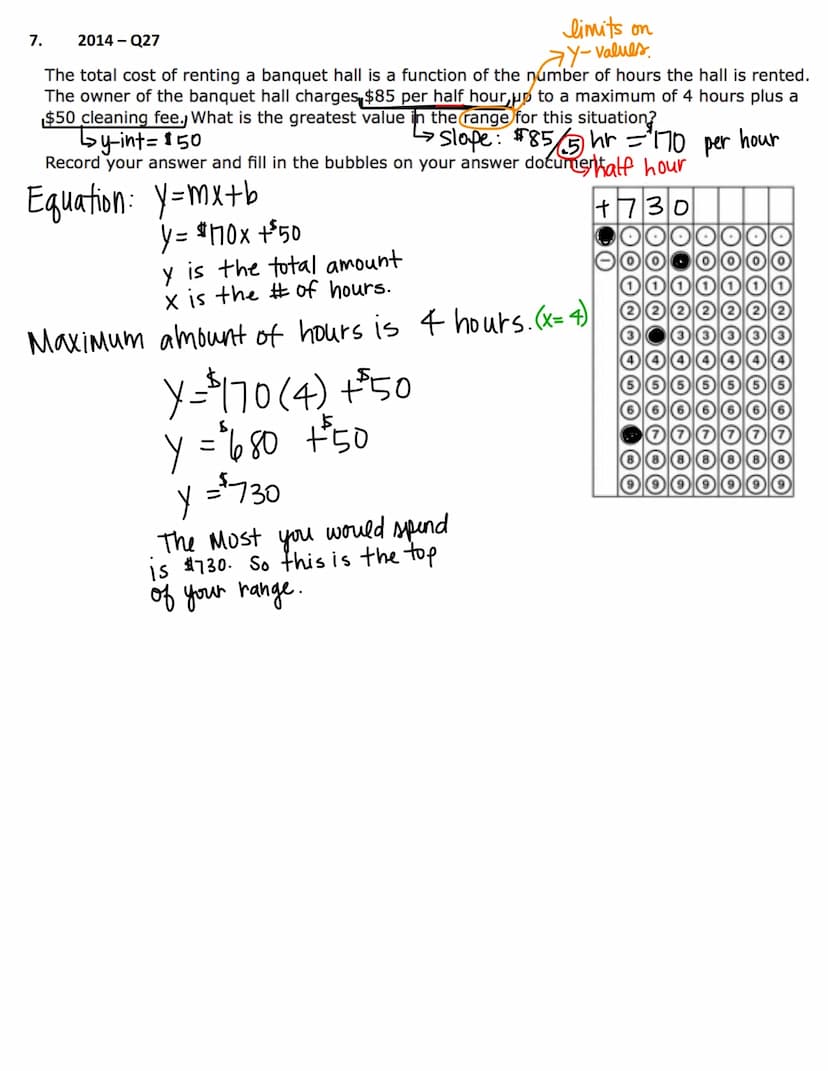 limits on
y-values.
7. 2014 – Q27
The total cost of renting a banquet hall is a function of the number of hours the hall is rented.
The owner of the banquet hall charges $85 per half hour, up to a maximum of 4 hours plus a
$50 cleaning fee. What is the greatest value in the range for this situation?
y-int= $50
slope: $85/.5 hr = $170 per hour
Record your answer and fill in the bubbles on your answer document.
half hour
Equation: y=mx+b
y= $170x +$50
y is the total amount
x is the # of hours.
Maximum amount of hours is 4 hours. (x= 4)
y=$170(4) +$50
y =$680 +$50
y =$730
The Most you would spend
is $730. So this is the top
of your range.
+ 7 3 0
. . . . . .
− 0 0 0 0 0 0
1 1 1 1 1 1 1
2 2 2 2 2 2 2
3 3 3 3 3 3
4 4 4 4 4 4 4
5 5 5 5 5 5 5
6 6 6 6 6 6 6
7 7 7 7 7 7
8 8 8 8 8 8 8
9 9 9 9 9 9 9